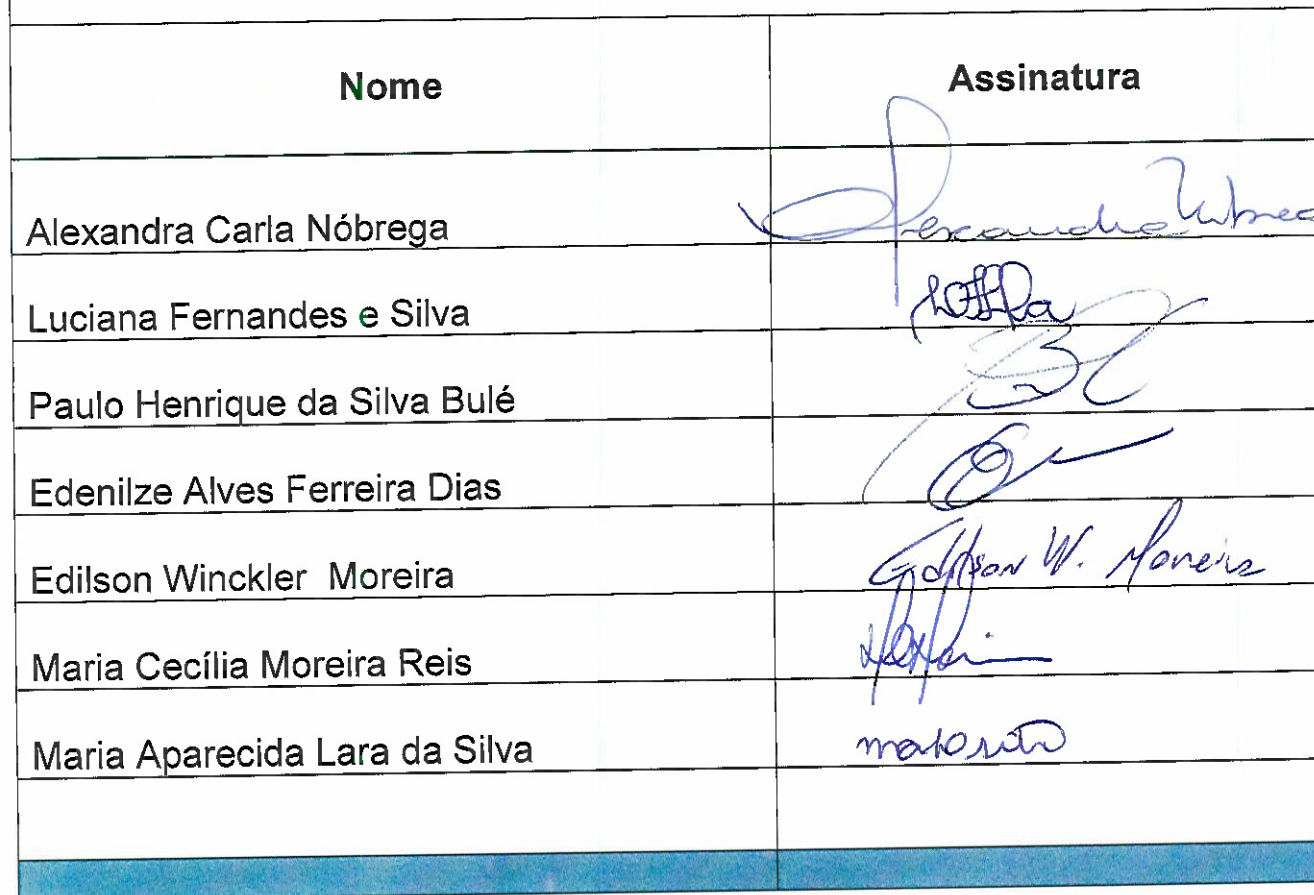 Nome Assinatura
Alexandra Carla Nóbrega Alexandra
Luciana Fernandes e Silva
Paulo Henrique da Silva Bulé
Edenilze Alves Ferreira Dias
Edilson Winckler Moreira Edilson W. Moreira
Maria Cecília Moreira Reis
Maria Aparecida Lara da Silva